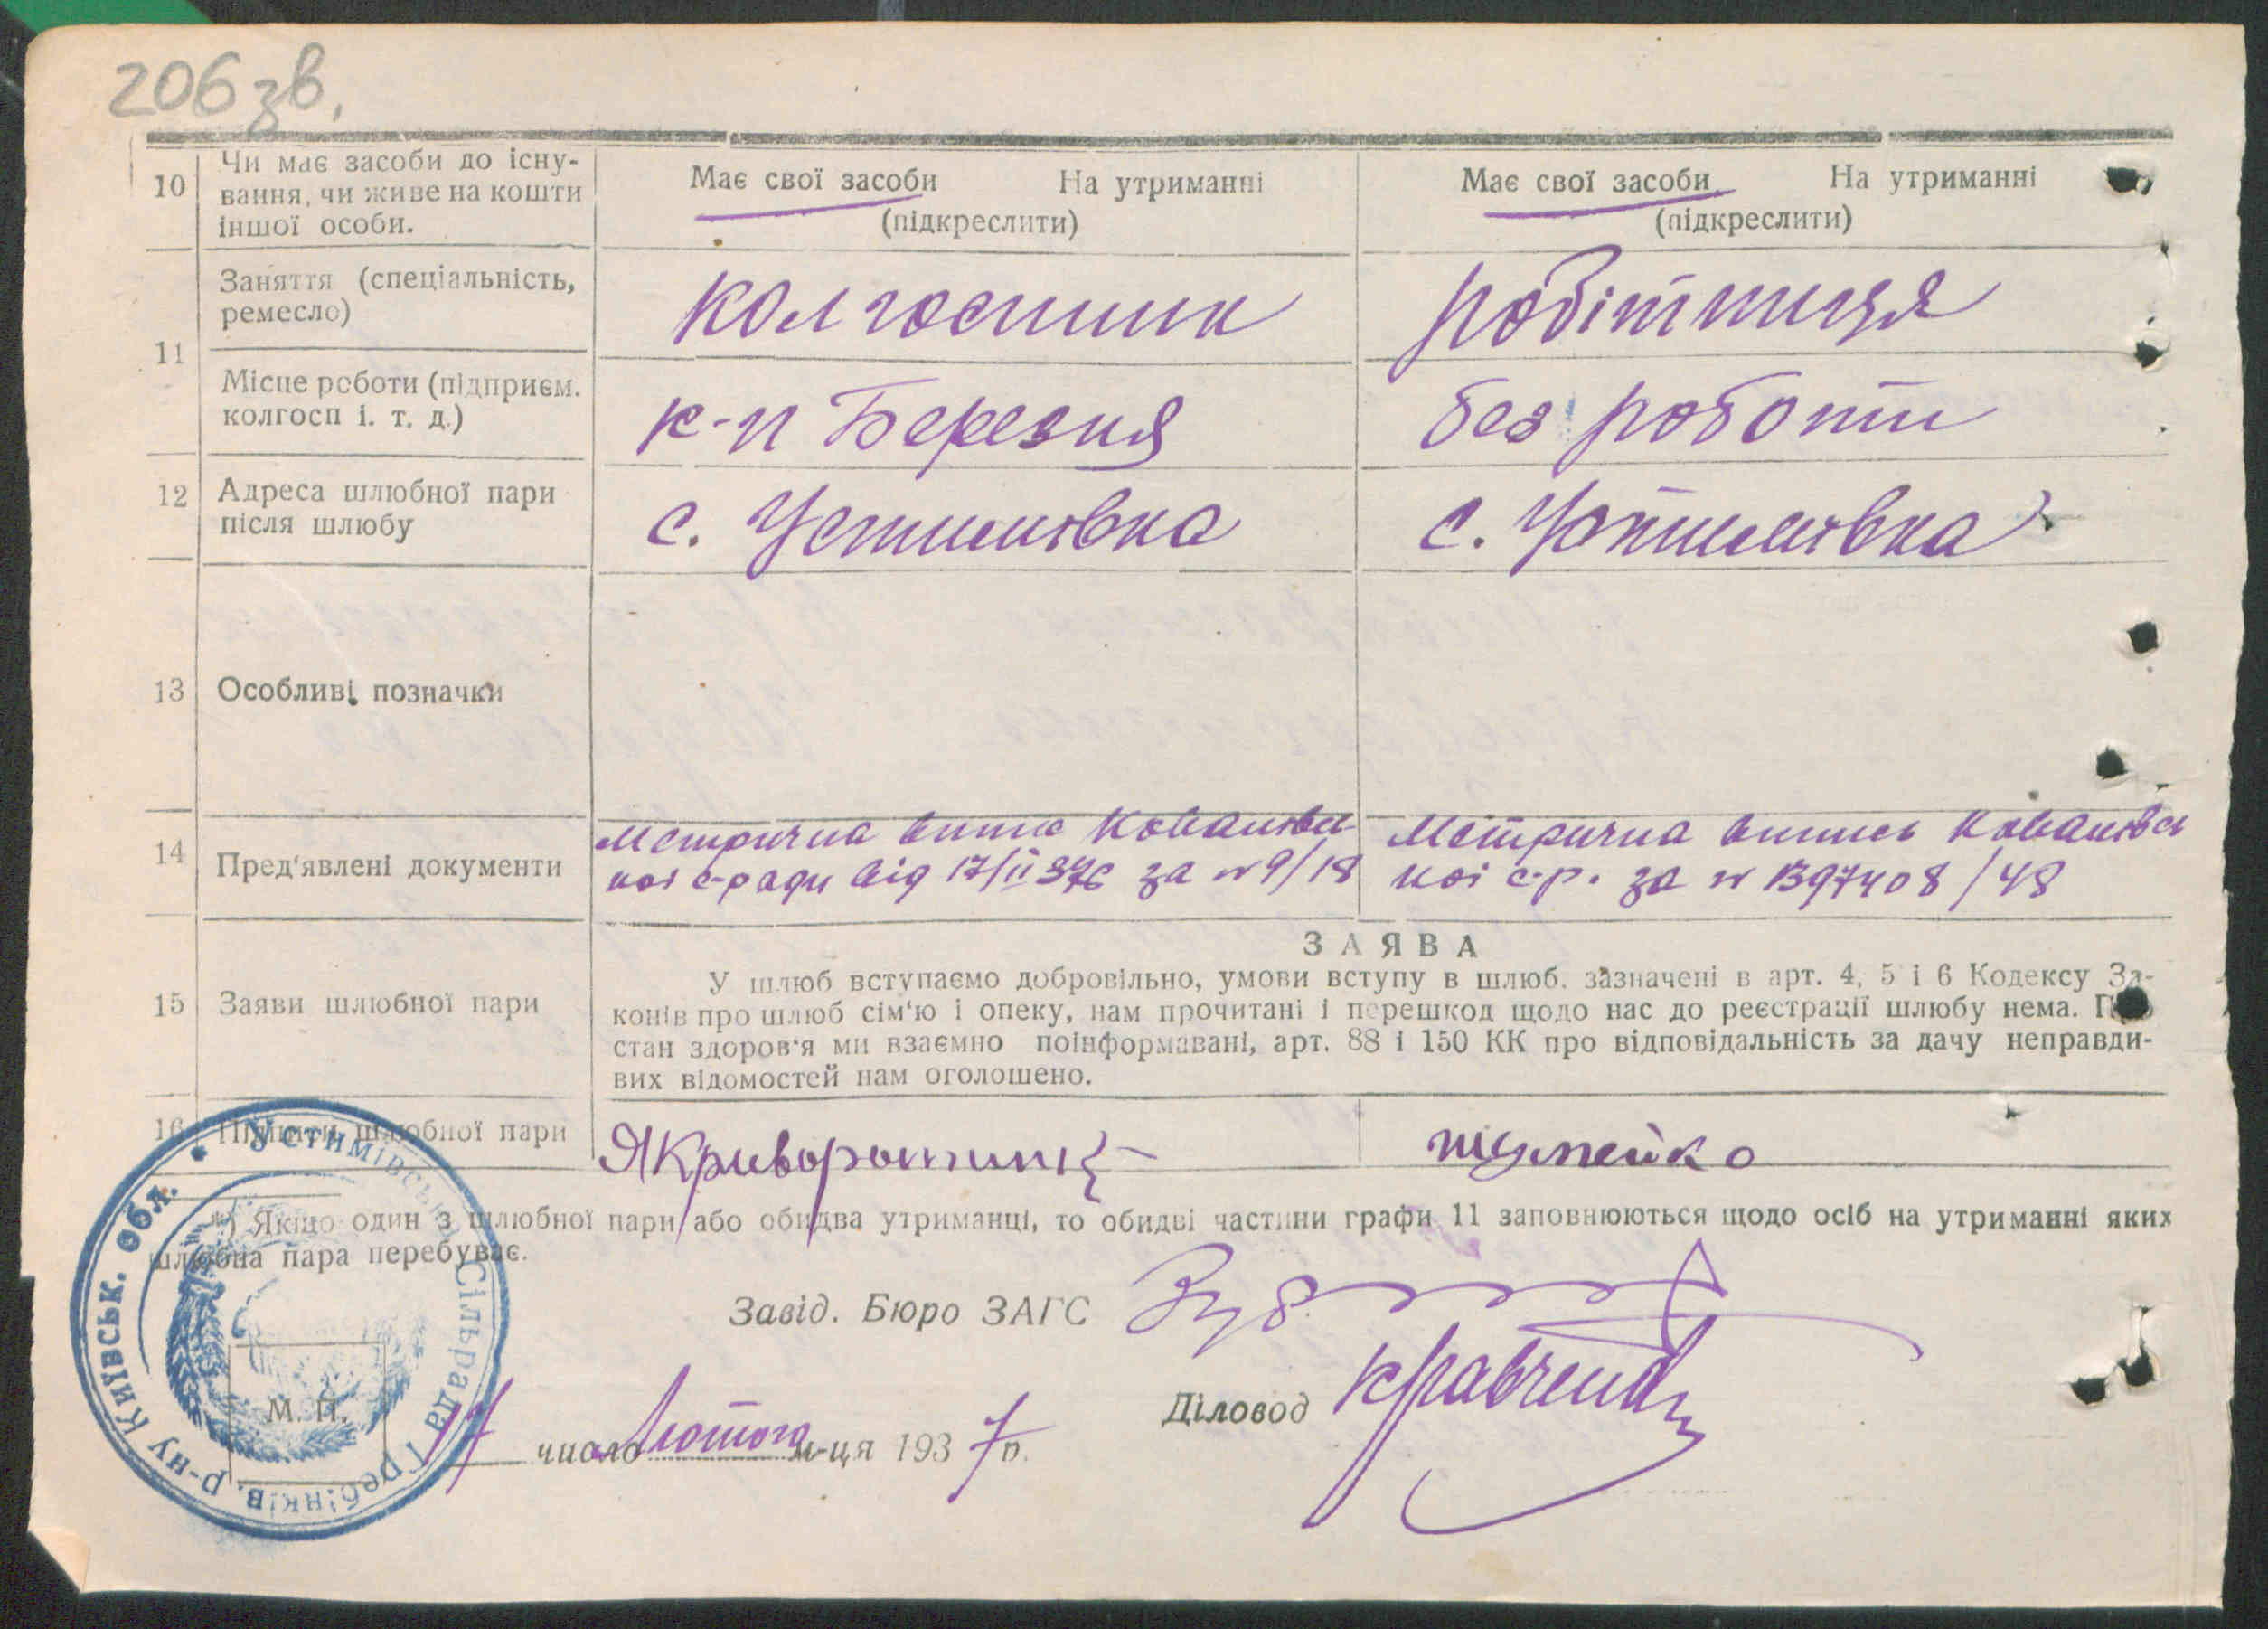 206 зв.
10 Чи має засоби до існу-
вання, чи живе на кошти
іншої особи.
Має свої засоби На утриманні
(підкреслити)
Має свої засоби На утриманні
(підкреслити)
11
Заняття (спеціальність,
ремесло)
колгоспник
робітниця
Місце роботи (підприєм.
колгосп і. т. д.)
к-п Березня
без роботи
12 Адреса шлюбної пари
після шлюбу
с. Устимівка
с. Устимівка
13 Особливі позначки
14 Пред'явлені документи
Метрична випис Ковалівсь-
кої с-ради від 17/II 37 за № 9/18
Метрична випись Ковалівсь
кої с-р. за № 397408/48
15 Заяви шлюбної пари
ЗАЯВА
У шлюб вступаємо добровільно, умови вступу в шлюб, зазначені в арт. 4, 5 і 6 Кодексу За-
конів про шлюб сім'ю і опеку, нам прочитані і перешкод щодо нас до реєстрації шлюбу нема. Про
стан здоров'я ми взаємно поінформавані, арт. 88 і 150 КК про відповідальність за дачу неправди-
вих відомостей нам оголошено.
16 Підписи шлюбної пари
ЯКриворотник
*) Якщо один з шлюбної пари або обидва утриманці, то обидві частини графи 11 заповнюються щодо осіб на утриманні яких
шлюбна пара перебуває.
Завід. Бюро ЗАГС
Діловод Кравченко
М. П.
17 число Лютого м-ця 1937 р.
Устимівська Сільрада Гребінків. р-ну Київськ. Обл.